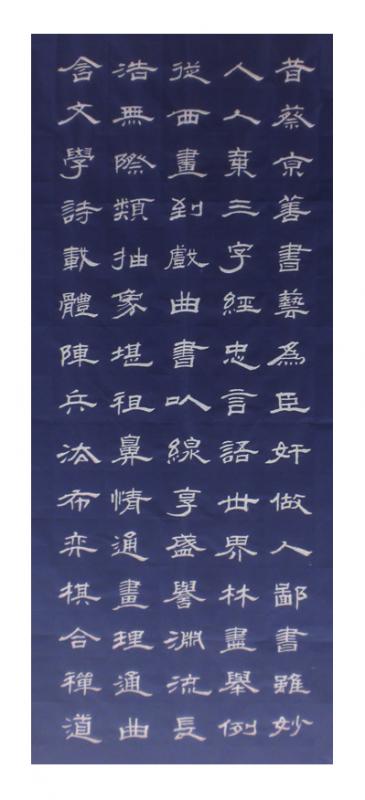 昔蔡京善書藝為臣奸做人鄙書雖妙
人人棄三字經忠言語世界林盡舉例
從西畫到戲曲書以線享盛譽淵流長
浩無際類抽象堪祖鼻情通畫理通曲
含文學詩載體陳兵法布弈棋合禪道